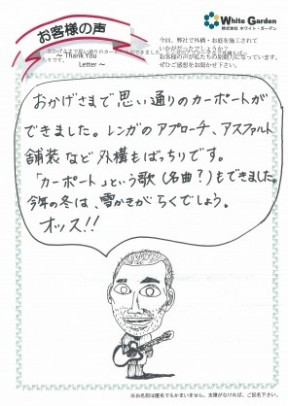 お客様の声
～ Thank You
Letter ～
White Garden
株式会社 ホワイト・ガーデン
今回、弊社で外構・お庭を施工されて
いかがだったでしょうか？
お客様の声が私たちの励みになっています。
ぜひご感想をお聞かせ下さい。
おかげさまで思い通りのカーポートが
できました。レンガのアプローチ、アスファルト
舗装など外構もばっちりです。
「カーポート」という歌（名曲？）もできました。
今年の冬は、雪かきがらくでしょう。
オッス!!
※お名前は匿名でもかまいません。支障がなければ、ご記名下さい。